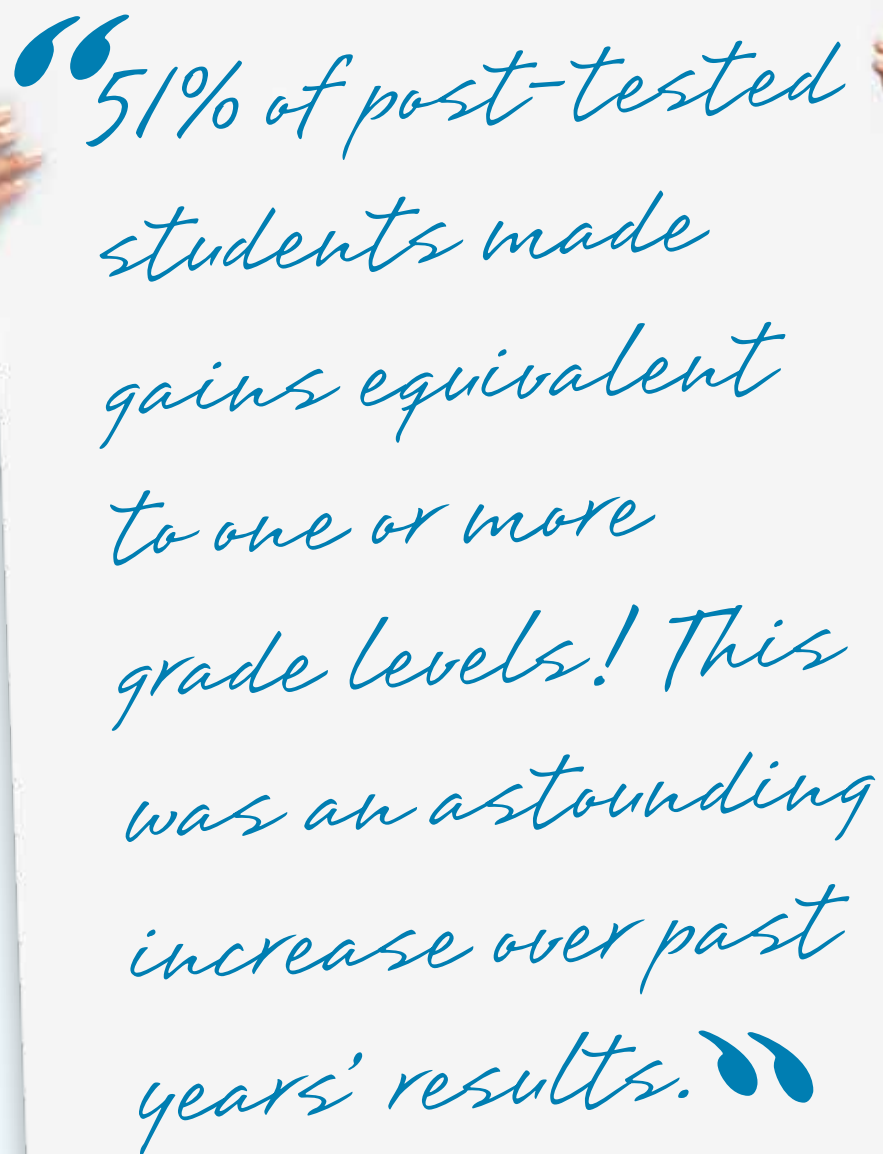 “51% of post-tested
students made
gains equivalent
to one or more
grade levels! This
was an astounding
increase over past
years’ results.”